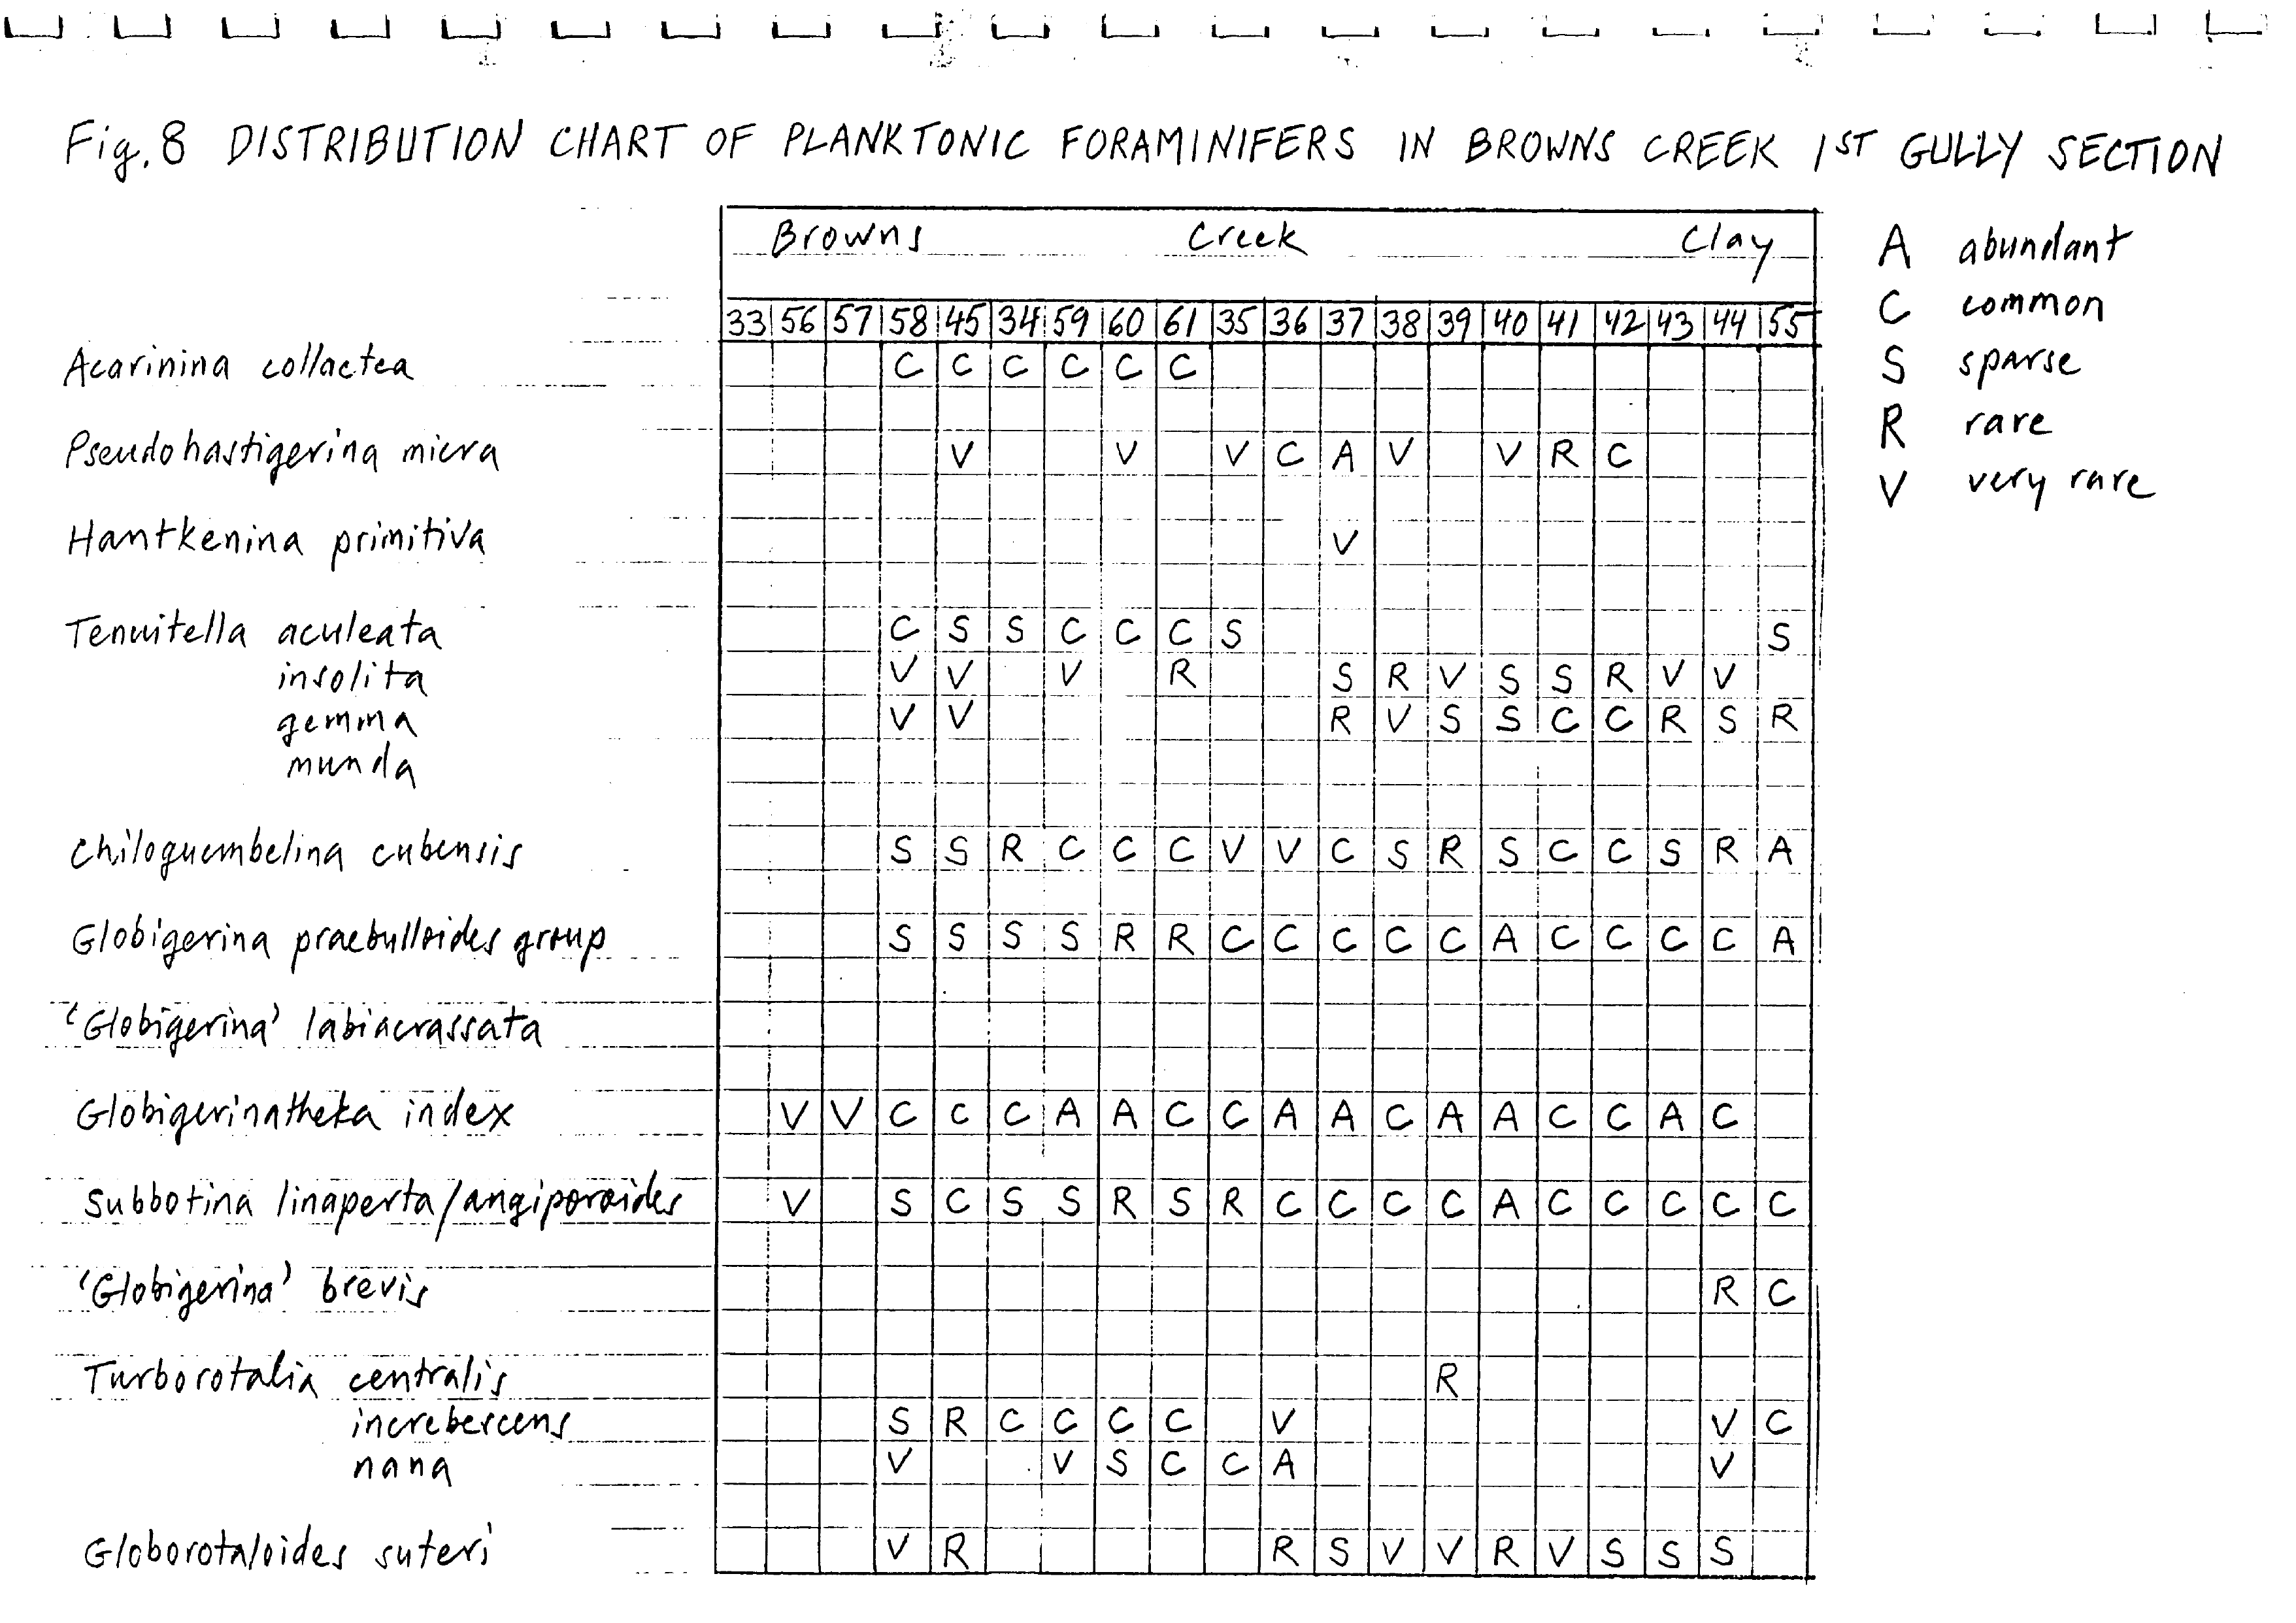 Fig. 8 DISTRIBUTION CHART OF PLANKTONIC FORAMINIFERS IN BROWNS CREEK 1ST GULLY SECTION
Browns Creek Clay
33 56 57 58 45 34 59 60 61 35 36 37 38 39 40 41 42 43 44 55
A abundant
C common
S sparse
R rare
V very rare
Acarinina collactea C C C C C C
Pseudohastigerina micra V V V C A V V R C
Hantkenina primitiva V
Tenuitella aculeata C S S C C C S S
insolita V V V R S R V S S R V V
gemma V V R V S S C C R S R
munda
Chiloguembelina cubensis S S R C C C V V C S R S C C S R A
Globigerina praebulloides group S S S S R R C C C C C A C C C C A
'Globigerina' labiacrassata
Globigerinatheka index V V C C C A A C C A A C A A C C A C
Subbotina linaperta/angiporoides V S C S S R S R C C C C A C C C C C
'Globigerina' brevis R C
Turborotalia centralis R
increbescens S R C C C C V V C
nana V V S C C A V
Globorotaloides suteri V R R S V V R V S S S